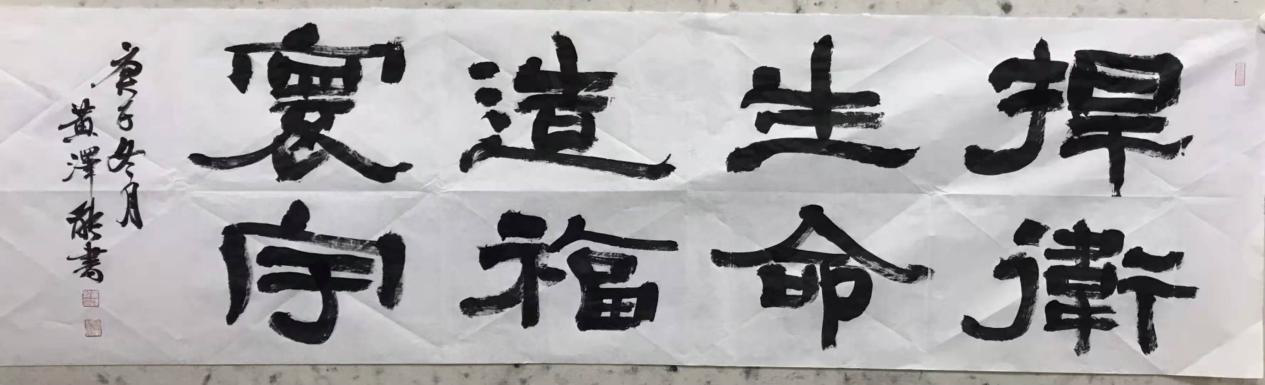 捍衛
生命
造福
寰宇
庚子冬月
黄澤能書